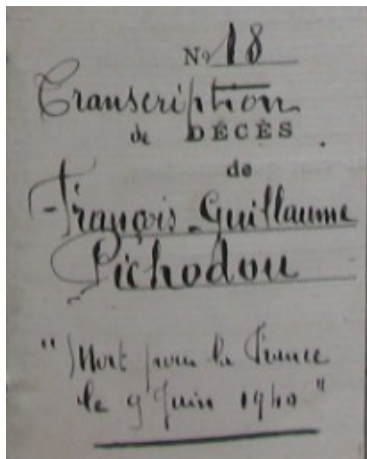 No 18
Transcription
de DÉCÈS
de
François Guillaume
Pichodou
"Mort pour la France
le 9 Juin 1940"